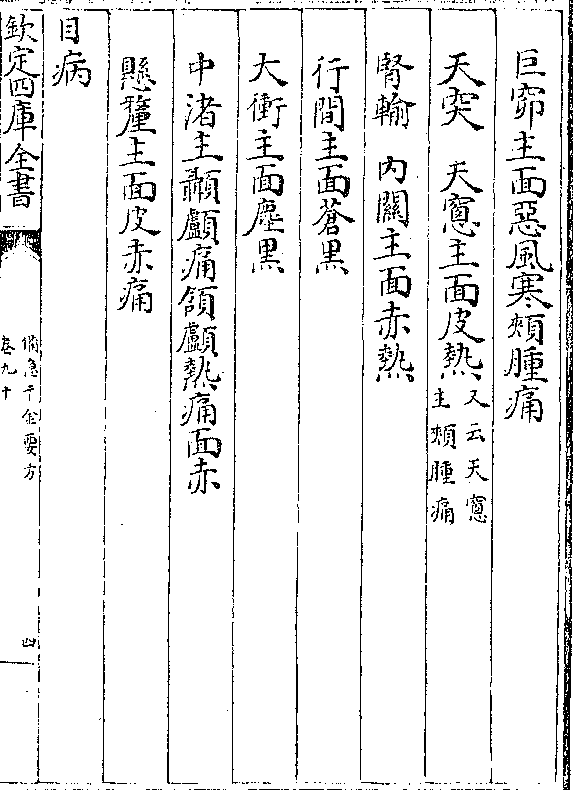 巨窌主面惡風寒頰腫痛
天突　天窻主面皮熱又云天窻主頰腫痛
腎輸　内關主面赤熱
行間主面蒼黒
大衝主面塵黒
中渚主顳顬痛頷顱熱痛面赤
懸釐主面皮赤痛
目病
欽定四庫全書
備急千金要方
卷九十
四